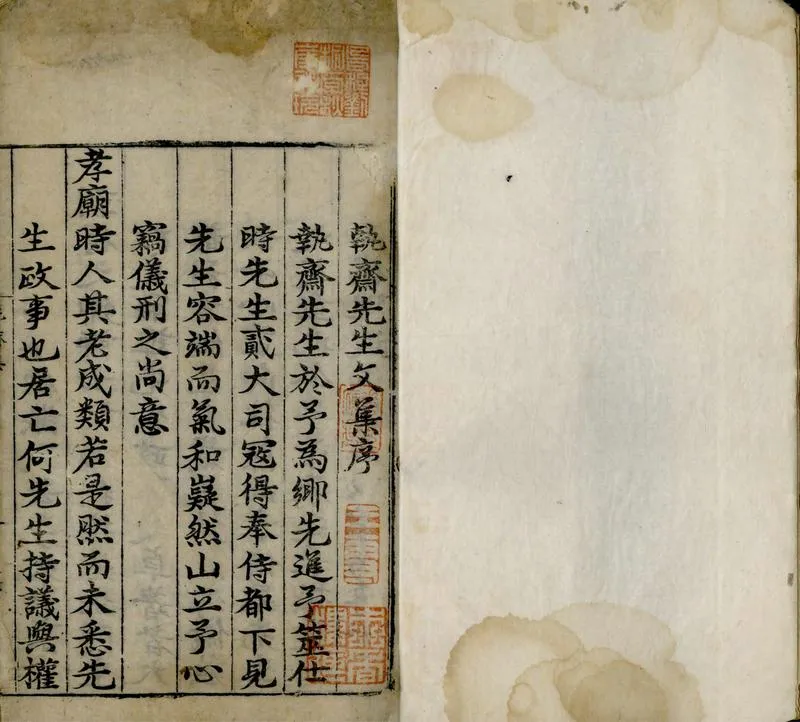 執齋先生文集序
執齋先生於予為鄉先進予筮仕
時先生貳大司寇得奉侍都下見
先生容端而氣和嶷然山立予心
竊儀刑之尚意
孝廟時人其老成類若是然而未悉先
生政事也居亡何先生持議與權